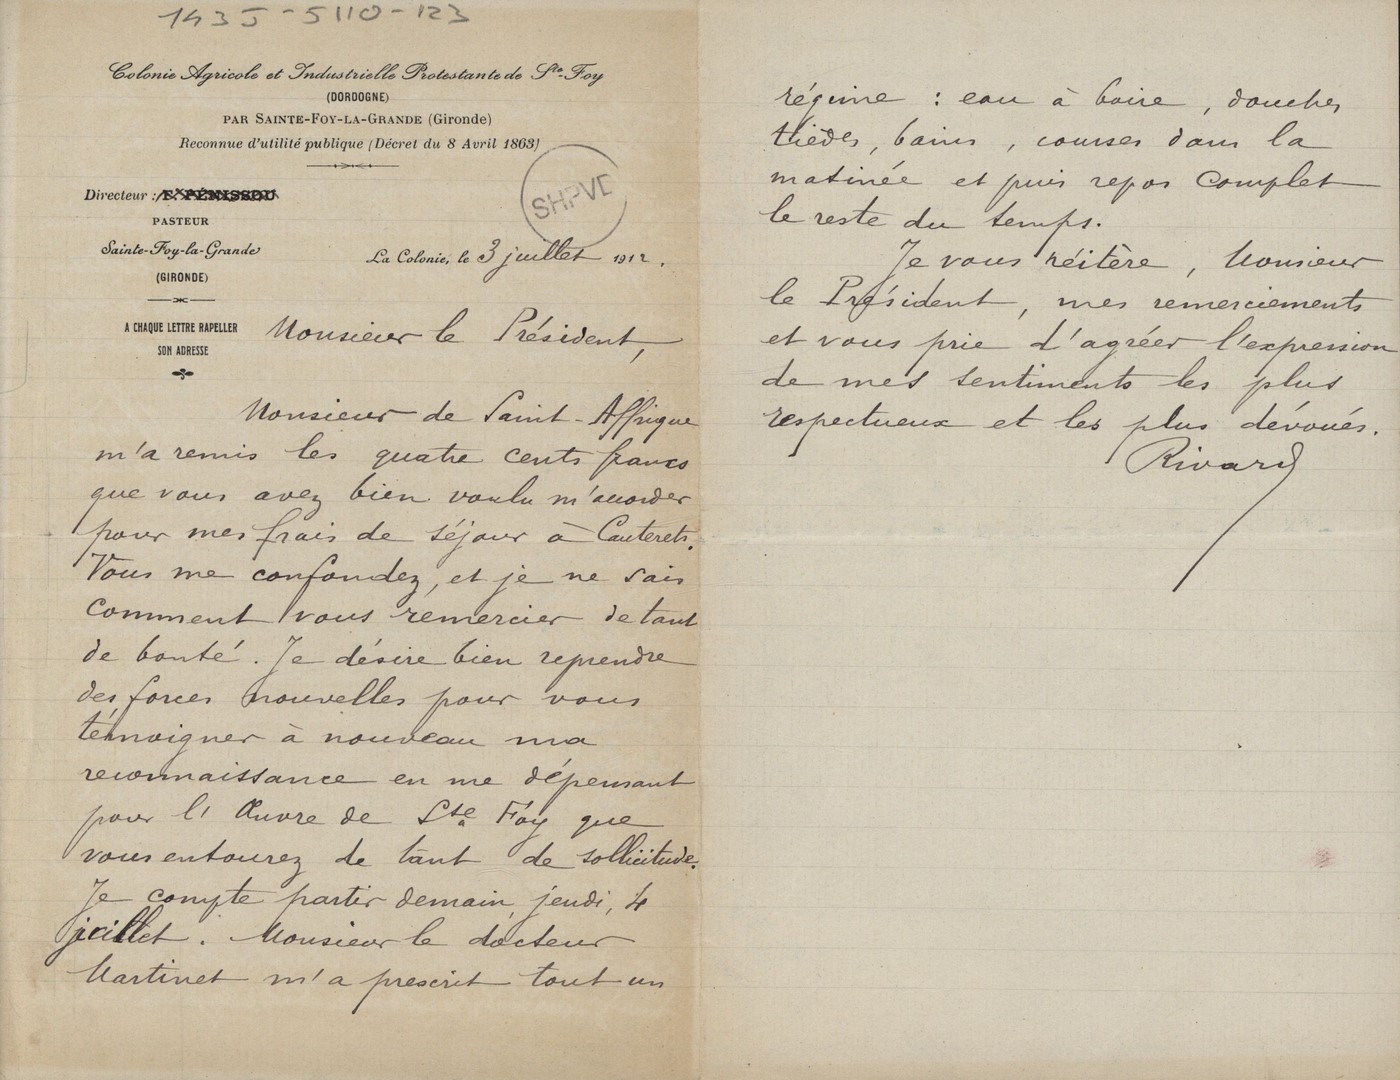 143J-5110-123
Colonie Agricole et Industrielle Protestante de Ste-Foy
(DORDOGNE)
PAR SAINTE-FOY-LA-GRANDE (Gironde)
Reconnue d'utilité publique (Décret du 8 Avril 1863)
SHPVD
Directeur : E. PÉNISSOU
PASTEUR
Sainte-Foy-la-Grande
(GIRONDE)
La Colonie, le 3 juillet 1912.
A CHAQUE LETTRE RAPELLER
SON ADRESSE
Monsieur le Président,
Monsieur de Saint-Affrique
m'a remis les quatre cents francs
que vous avez bien voulu m'accorder
pour mes frais de séjour à Cauterets.
Vous me confondez, et je ne sais
comment vous remercier de tant
de bonté. Je désire bien reprendre
des forces nouvelles pour vous
témoigner à nouveau ma
reconnaissance en me dépensant
pour l'Œuvre de Ste Foy que
vous entourez de tant de sollicitude.
Je compte partir demain, jeudi, 4
juillet. Monsieur le docteur
Martinet m'a prescrit tout un
régime : eau à boire, douches
tièdes, bains, courses dans la
matinée et puis repos complet
le reste du temps.
Je vous réitère, Monsieur
le Président, mes remerciements
et vous prie d'agréer l'expression
de mes sentiments les plus
respectueux et les plus dévoués.
Rivard